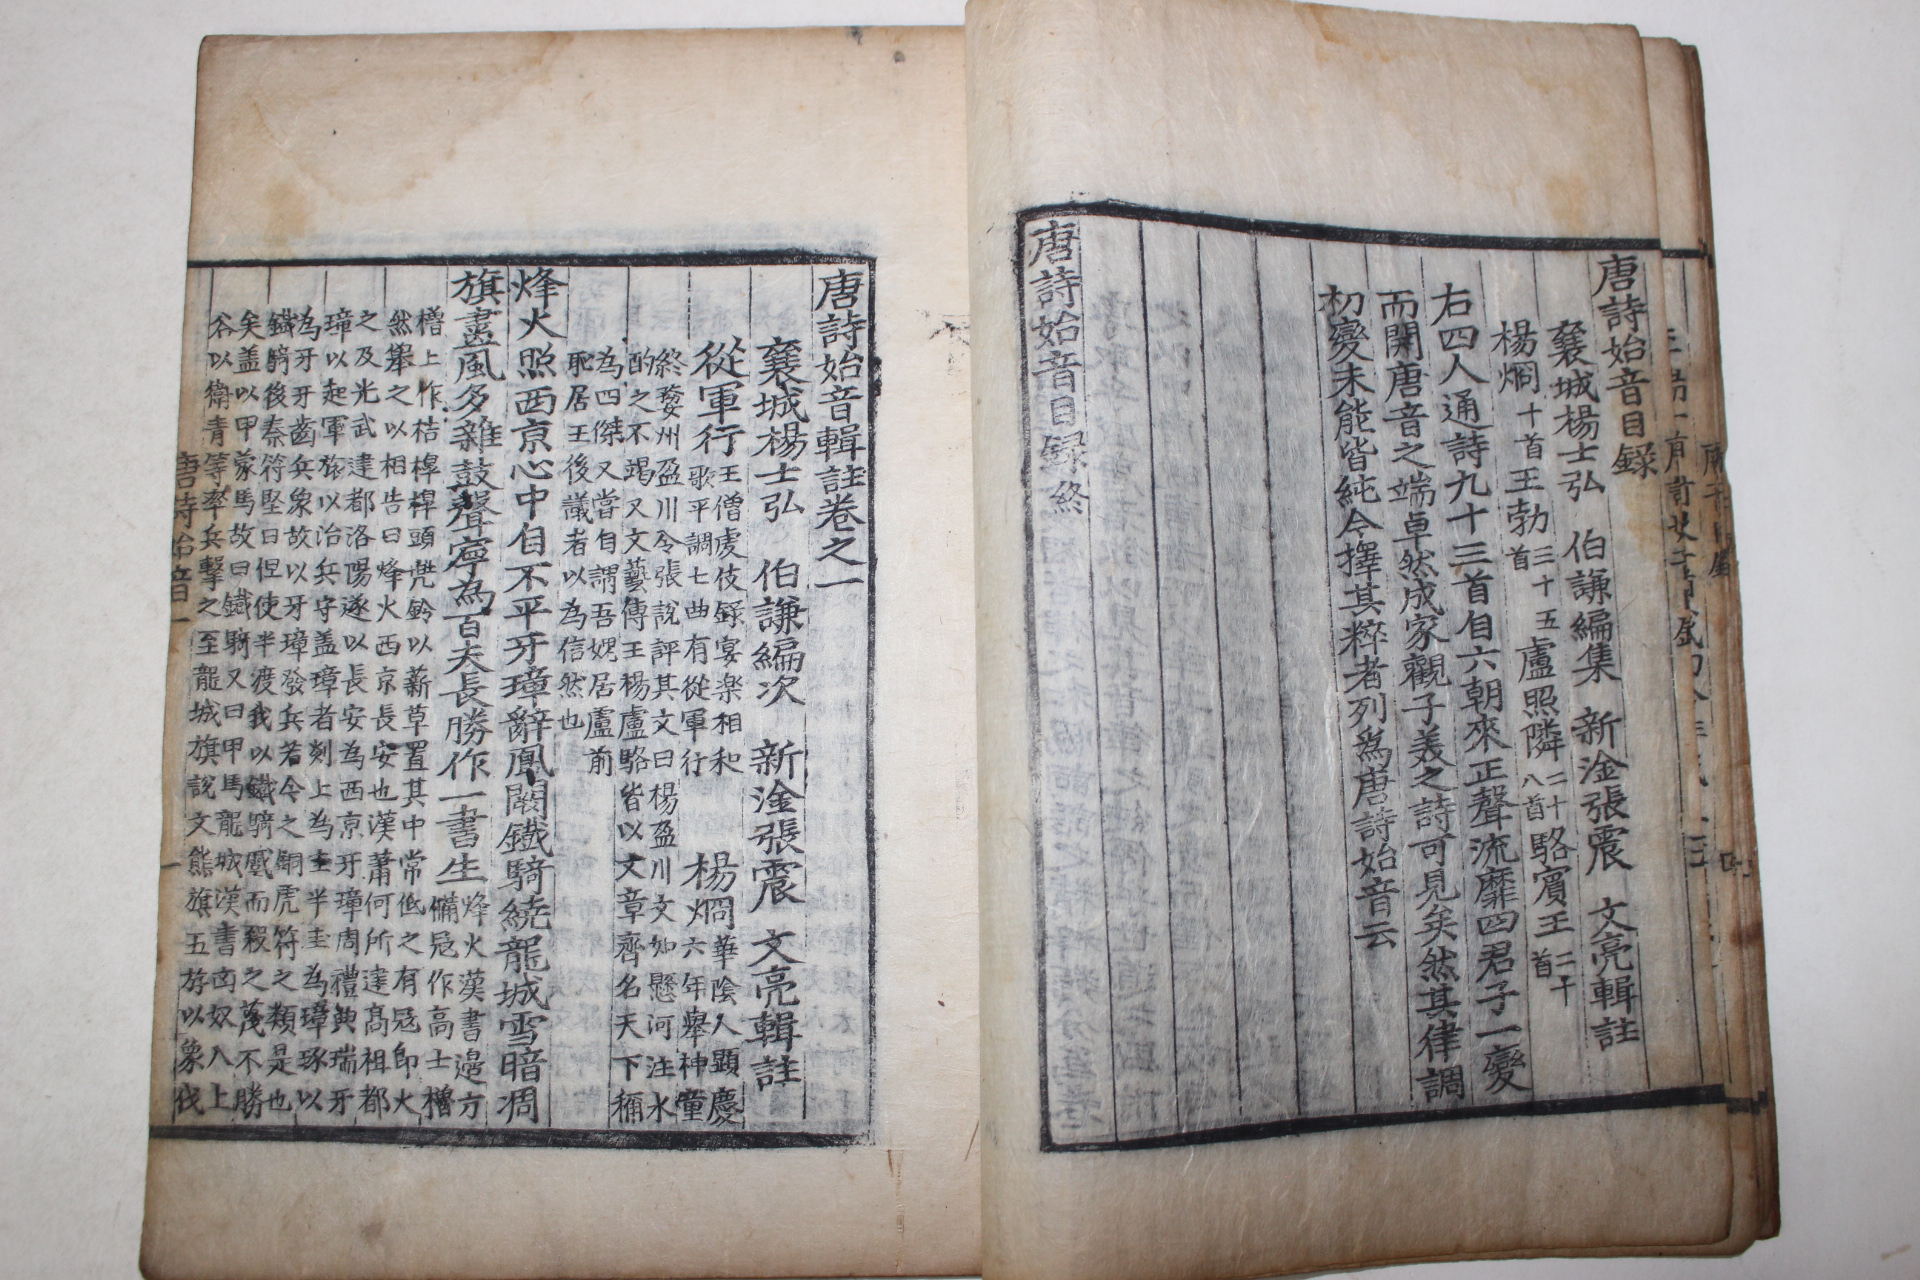 唐詩始音目録
襄城楊士弘 伯謙編集 新淦張震 文亮輯註
楊烱十首王勃三十五首盧照隣二十八首駱賓王二十首
右四人通詩九十三首自六朝來正聲流靡四君子一變
而開唐音之端卓然成家觀子美之詩可見矣然其律調
初變未能皆純今擇其粹者列爲唐詩始音云
唐詩始音目録終
唐詩始音輯註卷之一
襄城楊士弘 伯謙編次 新淦張震 文亮輯註
從軍行王僧虔伎録宴楽相和歌平調七曲有從軍行 楊烱華陰人顯慶六年舉神童
終婺州盈川令張說評其文曰楊盈川文如懸河注水
酌之不竭又文藝傳王楊盧駱皆以文章齊名天下稱
為四傑又嘗自謂吾媿居盧前
恥居王後議者以為信然也
烽火照西京心中自不平牙璋辭鳳闕鐵騎繞龍城雪暗凋
旗畫風多雜鼓聲寧為百夫長勝作一書生烽火漢書邉方備冦作高士櫓
櫓上作桔槹槹頭兠鈴以薪草置其中常低之有冦即火
然舉之以相告曰烽火西京長安也漢蕭何所逹髙祖都
之及光武建都洛陽遂以長安為西京牙璋周禮典瑞牙
璋以起軍旅以治兵守盖璋者剡上為圭半圭為璋琢以
為牙牙齒兵象故以牙璋發兵若今之銅虎符之類是也
鐵騎後秦符堅曰但使半渡我以鐵騎蹙而殺之蔑不勝
矣盖以甲蒙馬故曰鐵騎又曰甲馬龍城漢書匈奴入上
谷以衛青等率兵擊之至龍城旗說文熊旗五斿以象伐
唐詩始音一
一